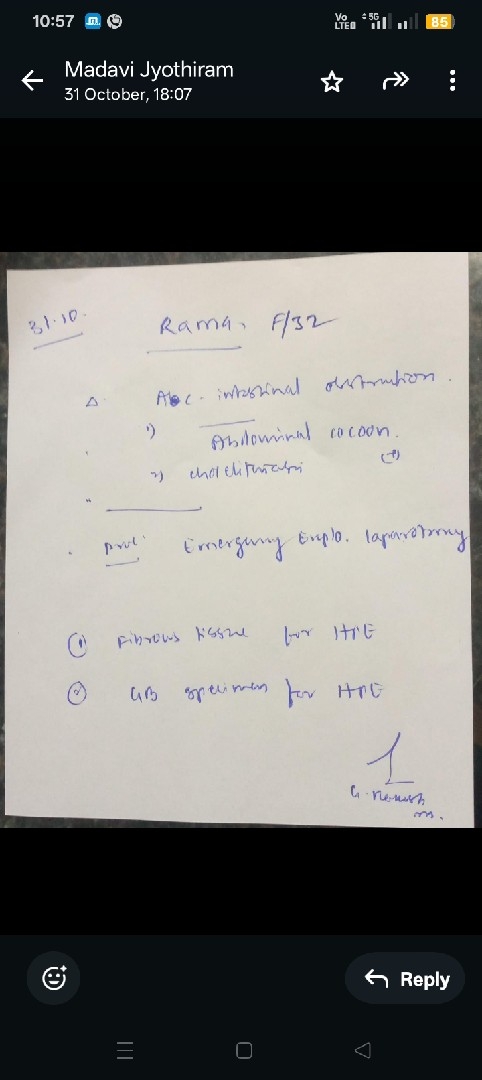 10:57
Vo LTE 5G 85
Madavi Jyothiram
31 October, 18:07
31.10.
Rama. F/32
Δ. Abc - intestinal obstruction.
1) Abdominal cocoon.
2)
Emergency Explo. laparotomy
① Fibrous tissue for HPE
② GB specimen for HPE
Reply